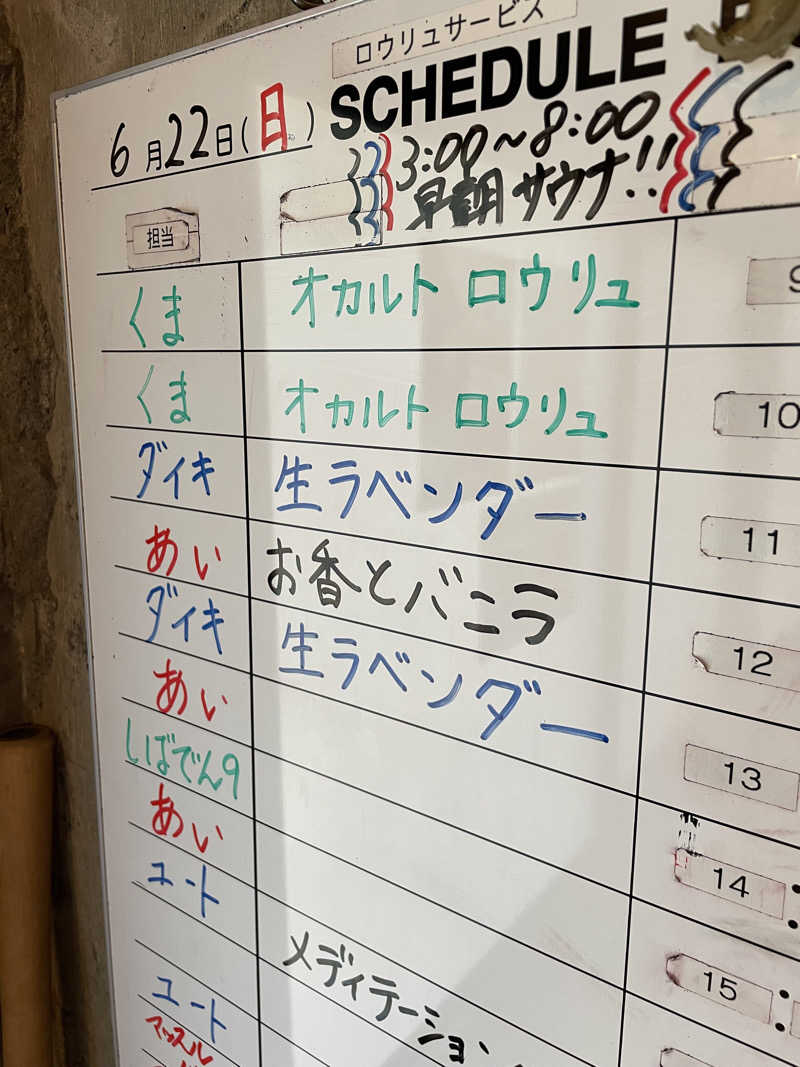 ロウリュサービス
SCHEDULE
6月22日(日)
3:00~8:00
早朝サウナ!!
担当
くま オカルト ロウリュ
くま オカルト ロウリュ 10
ダイキ 生ラベンダー 11
あい お香とバニラ 12
ダイキ 生ラベンダー 13
あい 14
しばでん9 15
あい
ユート メディテーション
ユート
マッスル